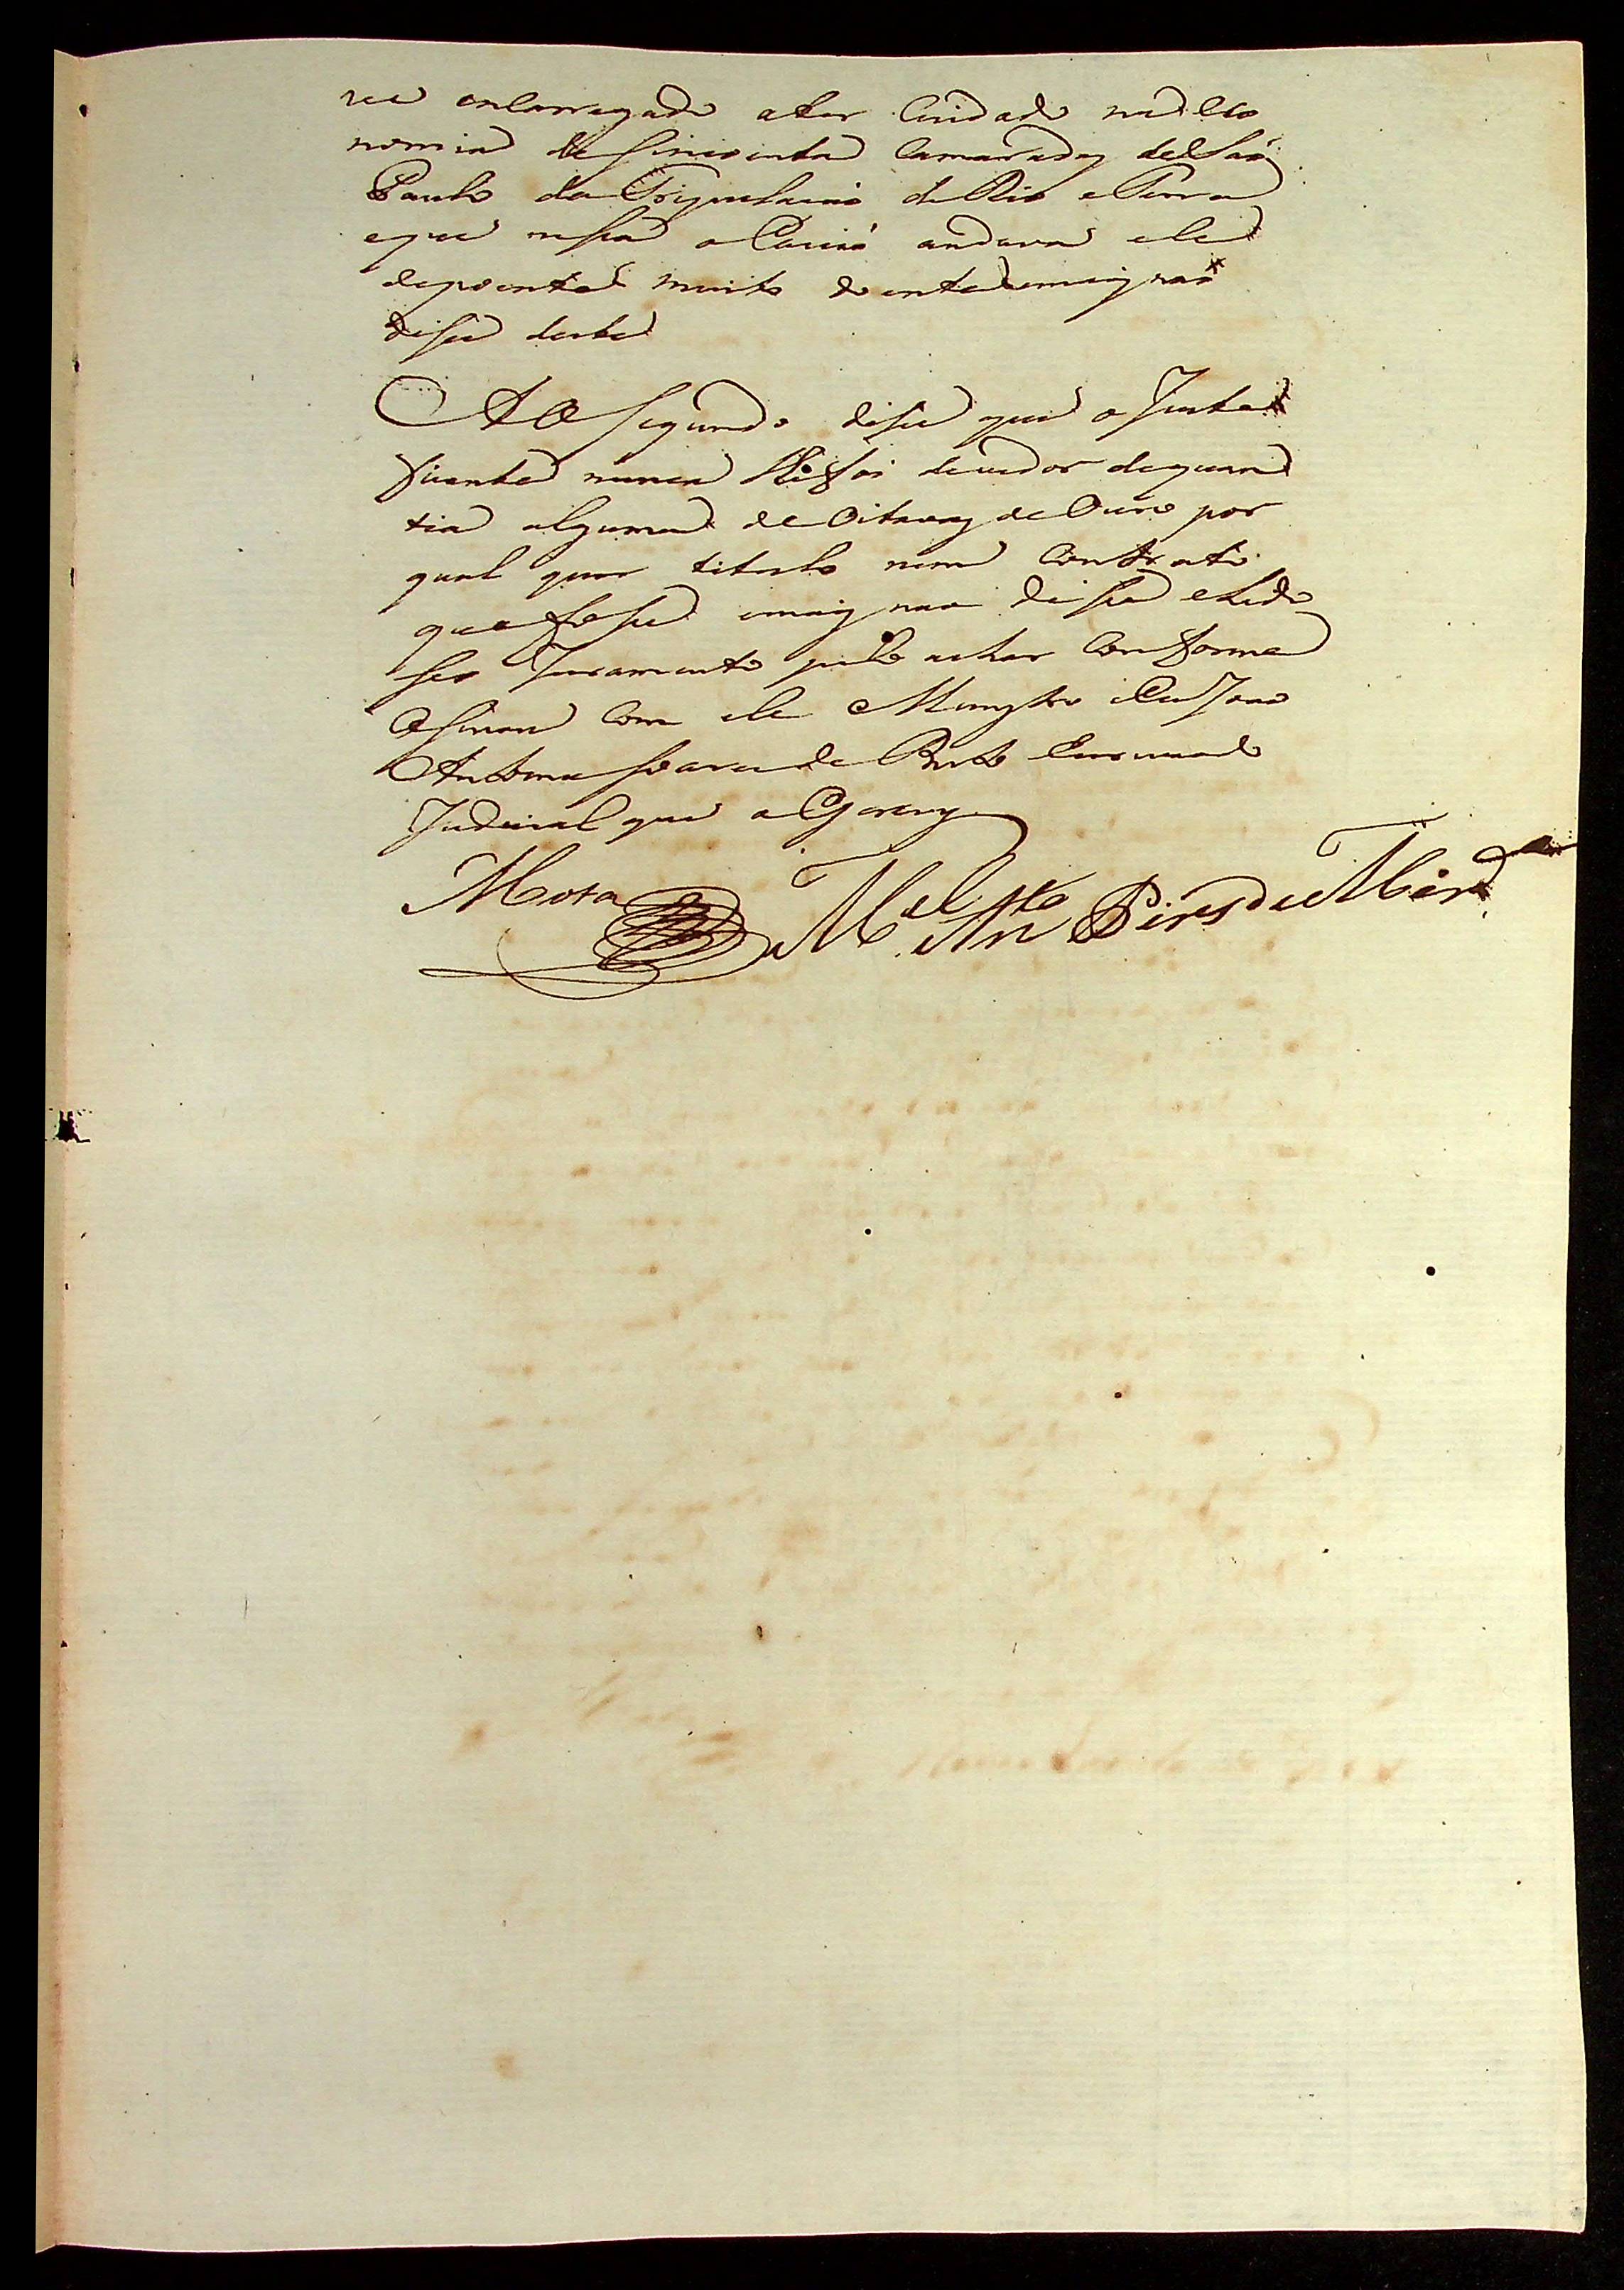 rei encarregado a ter Cuidado na Eco
nomia de Sincoenta Camaradas de São
Paulo da Tripulacaõ do Rio e Terra
e que nesa oCaziaõ andava ele
depoente muito doente emaiz naõ
dise deste
AO Segundo dise que o Juste
ficante nunca lhe foi devedor de quan
tia alguma de Oitavas de Ouro por
qual quer titulo nem Contrato
que fose emaiz nao dise e lido
seo Juramento pelo achar Conforme
aSinou Com ele Menistro e Eu Joaõ
Antonio Soares de Brito Escrivaõ
Judicial que o Escrevy
Mota M.el An.to Pires de Mir.da